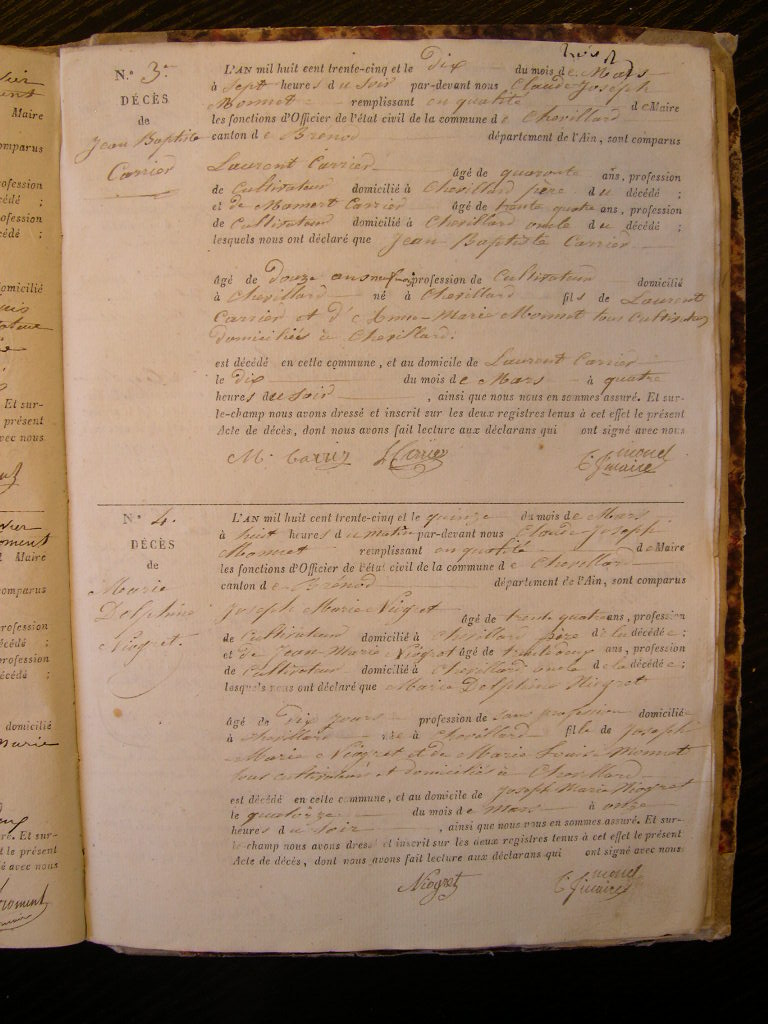 N.° 3.
DÉCÈS
de
Jean Baptiste
Carrier
L'AN mil huit cent trente-cinq et le Dix du mois de Mars
à Sept heures du Soir par-devant nous Claude Joseph
Monnet remplissant en qualité de Maire
les fonctions d'Officier de l'état civil de la commune de Chevillard
canton de Brénod département de l'Ain, sont comparus
Laurent Carrier âgé de quarante ans, profession
de Cultivateur domicilié à Chevillard père du décédé ;
et de Mamert Carrier âgé de trente quatre ans, profession
de Cultivateur domicilié à Chevillard oncle du décédé ;
lesquels nous ont déclaré que Jean Baptiste Carrier
âgé de Douze ans neuf mois profession de Cultivateur domicilié
à Chevillard né à Chevillard fils de Laurent
Carrier et d'Anne-Marie Monnet tous Cultivateurs
domiciliés à Chevillard.
est décédé en cette commune, et au domicile de Laurent Carrier
le Dix du mois de Mars à quatre
heures du Soir , ainsi que nous nous en sommes assuré. Et sur-
le-champ nous avons dressé et inscrit sur les deux registres tenus à cet effet le présent
Acte de décès, dont nous avons fait lecture aux déclarans qui ont signé avec nous
M. Carrier L Carrier monet
C. J. maire
N° 4.
DÉCÈS
de
Marie
Delphine
Niogret.
L'AN mil huit cent trente-cinq et le quinze du mois de Mars
à huit heures du matin par-devant nous Claude-Joseph
Monnet remplissant en qualité de Maire
les fonctions d'Officier de l'état civil de la commune de Chevillard
canton de Brénod département de l'Ain, sont comparus
Joseph Marie Niogret âgé de trente quatre ans, profession
de Cultivateur domicilié à Chevillard père de la décédée ;
et de Jean-Marie Niogret âgé de ans, profession
de Cultivateur domicilié à Chevillard oncle de la décédée ;
lesquels nous ont déclaré que Marie Delphine Niogret
âgé de Dix jours profession de sans profession domiciliée
à Chevillard née à Chevillard fille de Joseph
Marie Niogret et de Marie Louise Monnet
tous cultivateurs et domiciliés à Chevillard
est décédé en cette commune, et au domicile de Joseph Marie Niogret
le quatorze du mois de Mars à onze
heures du Soir , ainsi que nous nous en sommes assuré. Et sur-
le-champ nous avons dressé et inscrit sur les deux registres tenus à cet effet le présent
Acte de décès, dont nous avons fait lecture aux déclarans qui ont signé avec nous
Niogret monet
C. J. maire